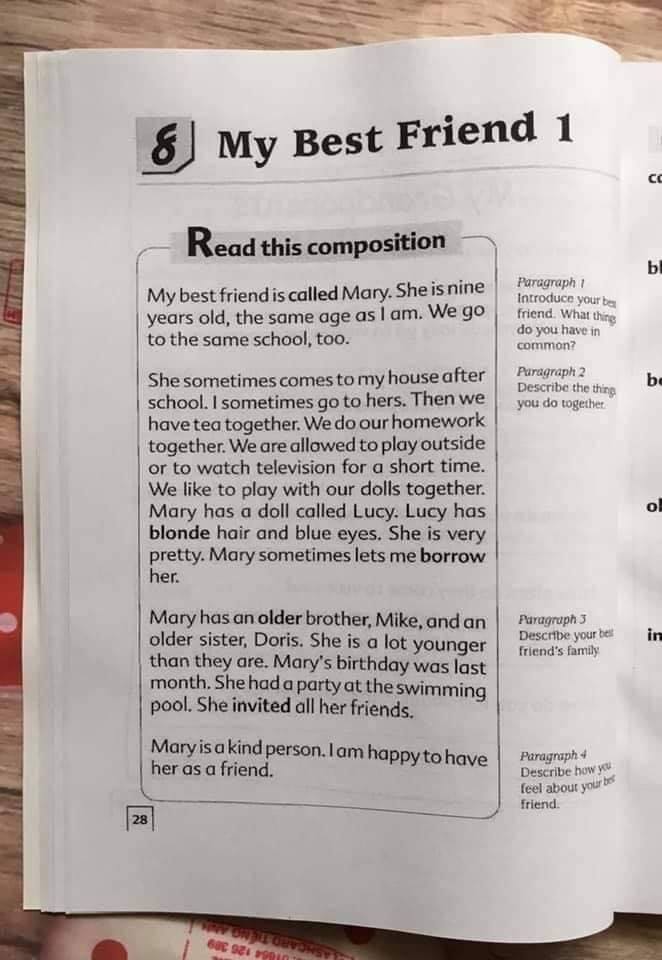 8 My Best Friend 1
Read this composition
My best friend is called Mary. She is nine
years old, the same age as I am. We go
to the same school, too.
She sometimes comes to my house after
school. I sometimes go to hers. Then we
have tea together. We do our homework
together. We are allowed to play outside
or to watch television for a short time.
We like to play with our dolls together.
Mary has a doll called Lucy. Lucy has
blonde hair and blue eyes. She is very
pretty. Mary sometimes lets me borrow
her.
Mary has an older brother, Mike, and an
older sister, Doris. She is a lot younger
than they are. Mary's birthday was last
month. She had a party at the swimming
pool. She invited all her friends.
Mary is a kind person. I am happy to have
her as a friend.
Paragraph 1
Introduce your best
friend. What things
do you have in
common?
Paragraph 2
Describe the things
you do together.
Paragraph 3
Describe your best
friend's family.
Paragraph 4
Describe how you
feel about your best
friend.
28